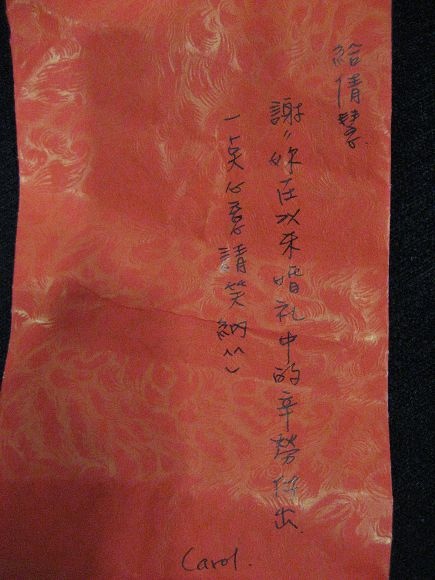 給倩慧
謝〃妳在婚礼中的辛勞付出.
一点心意請笑納^^)
Carol.